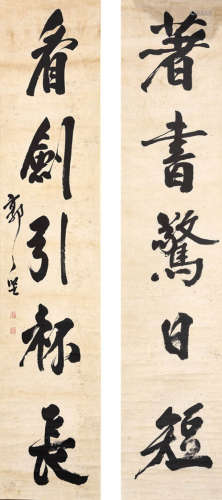 著書驚日短
看劍引杯長
郭之